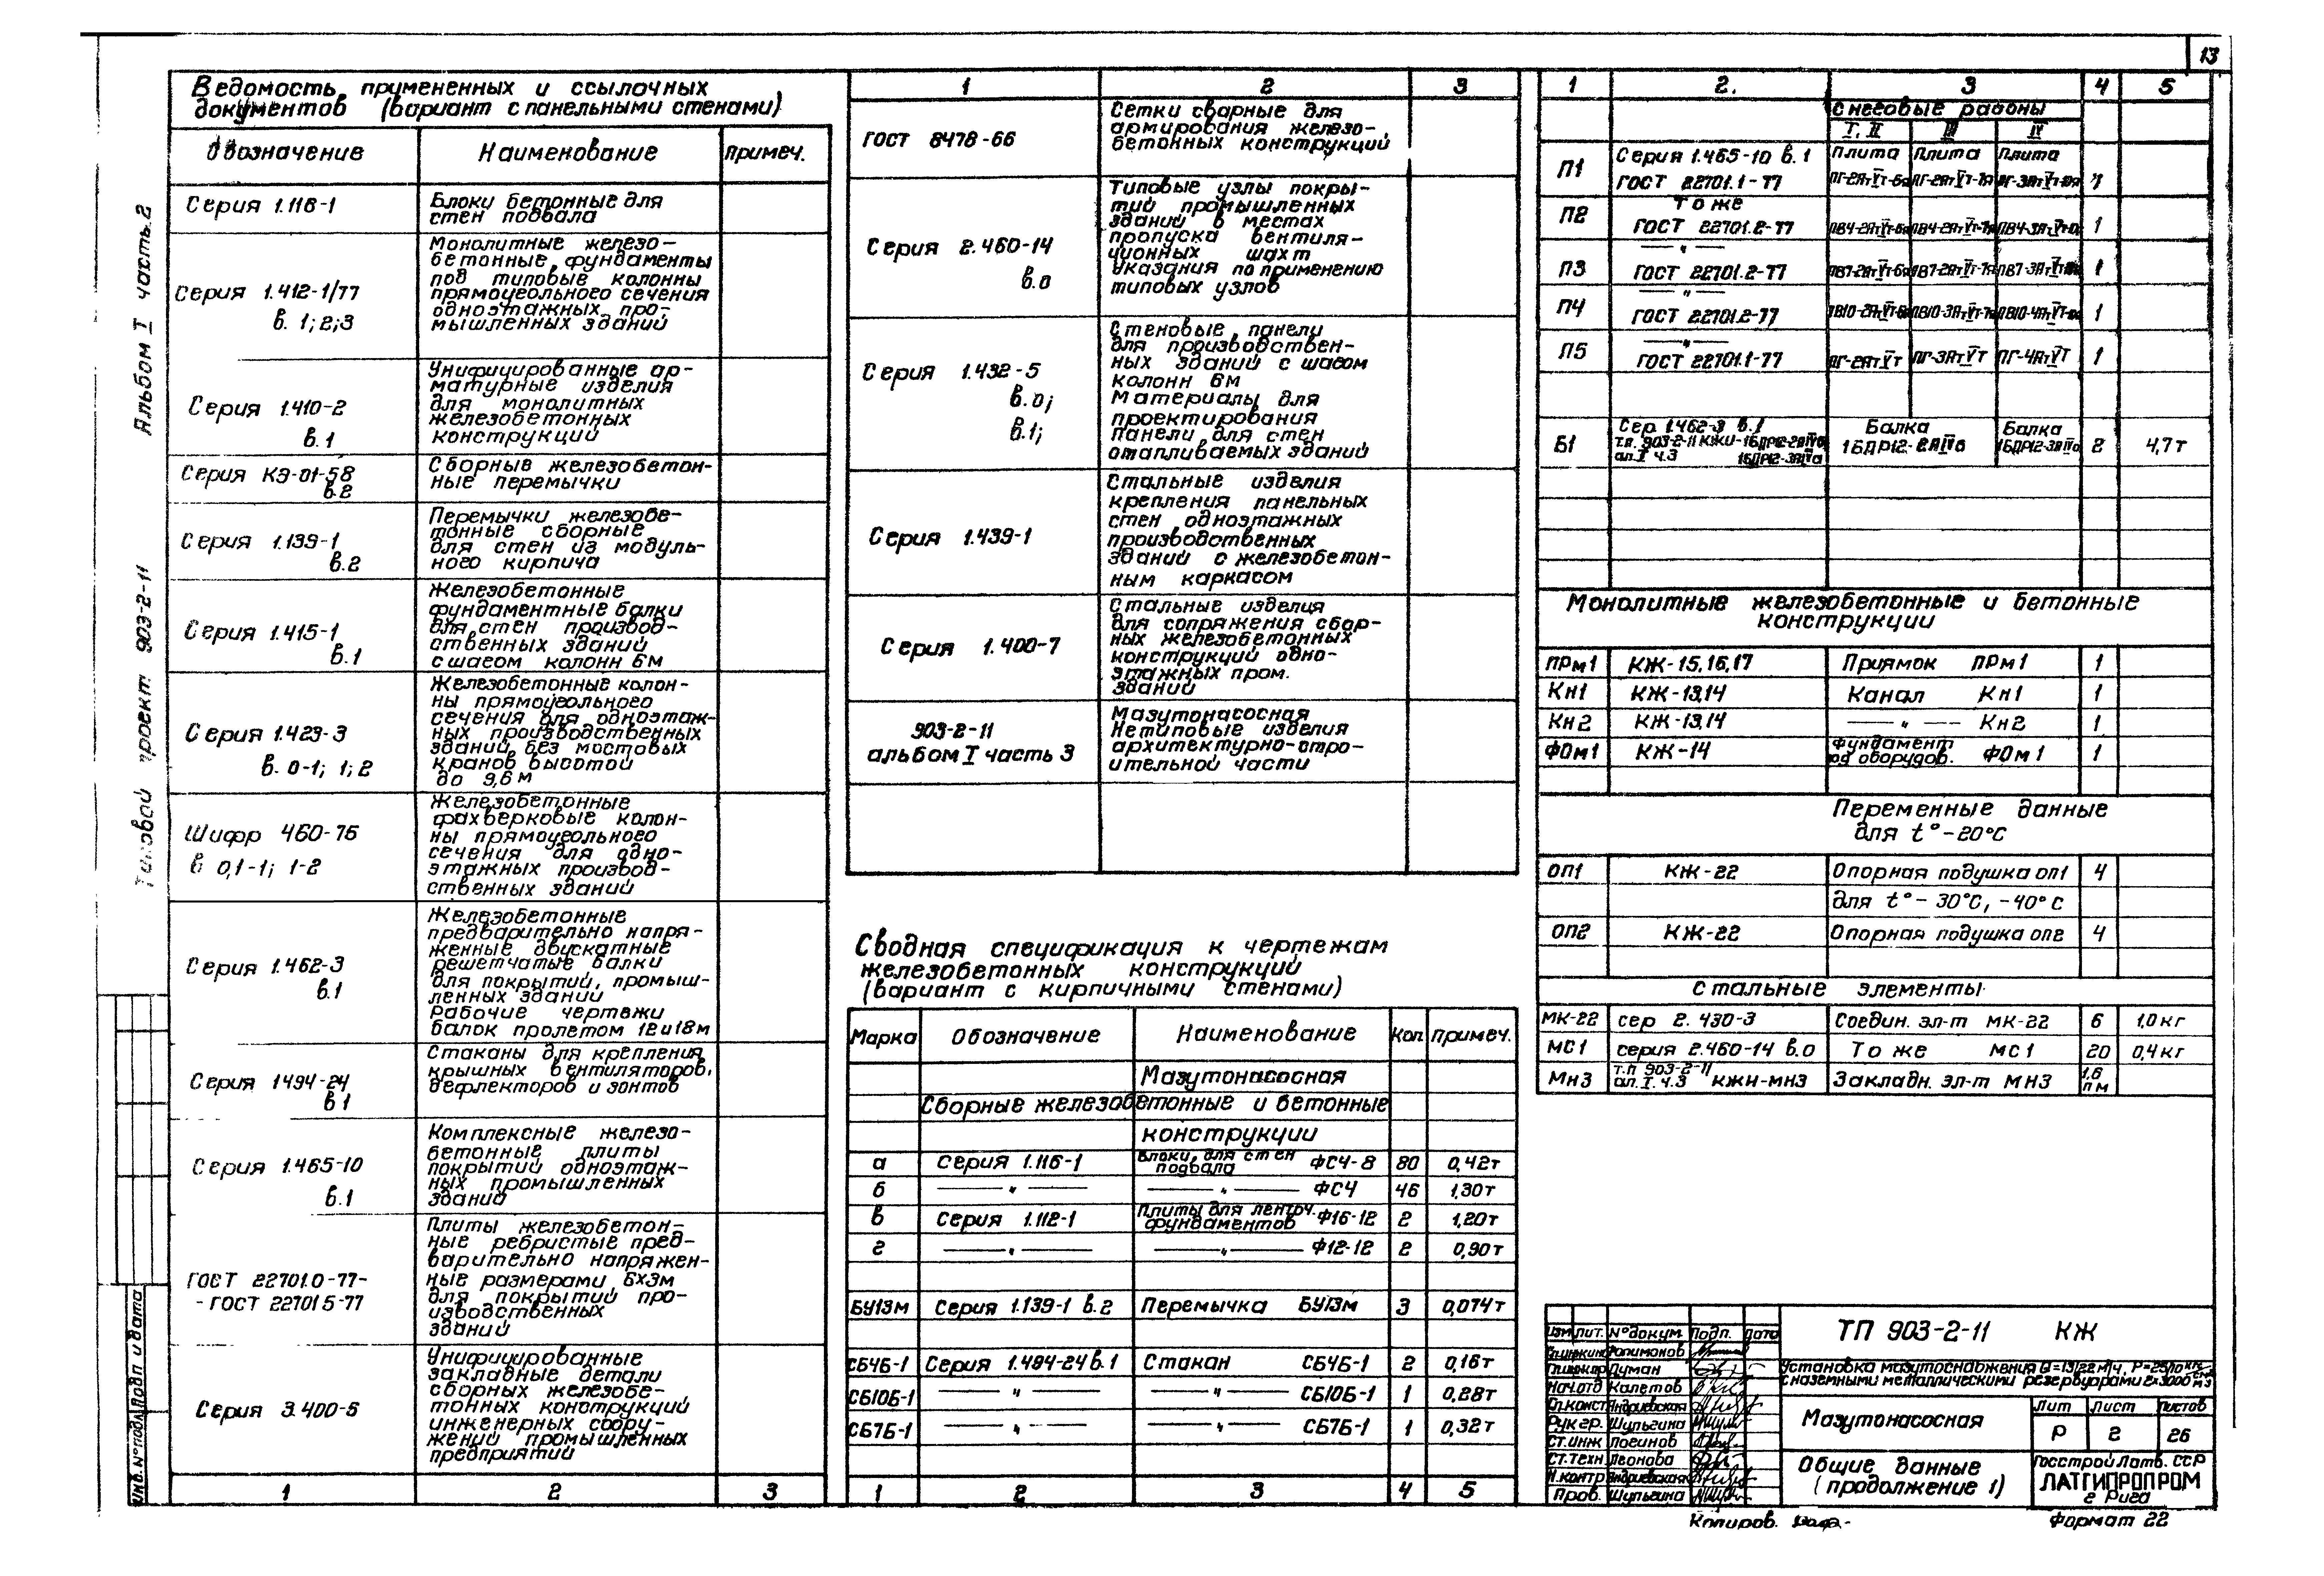 13
Альбом I часть.2
Типовой проект 903-2-11
Инв.№подл. Подп и дата
Ведомость примененных и ссылочных
документов (вариант с панельными стенами)
Обозначение Наименование Примеч.
Серия 1.116-1 Блоки бетонные для
стен подвала
Серия 1.412-1/77
в. 1;2;3
Монолитные железо-
бетонные фундаменты
под типовые колонны
прямоугольного сечения
одноэтажных про-
мышленных зданий
Серия 1.410-2
в.1
Унифицированные ар-
матурные изделия
для монолитных
железобетонных
конструкций
Серия КЭ-01-58
в.2
Сборные железобетон-
ные перемычки
Серия 1.139-1
в.2
Перемычки железобе-
тонные сборные
для стен из модуль-
ного кирпича
Серия 1.415-1
в.1
Железобетонные
фундаментные балки
для стен производ-
ственных зданий
с шагом колонн 6м
Серия 1.423-3
в. 0-1; 1; 2
Железобетонные колон-
ны прямоугольного
сечения для одноэтаж-
ных производственных
зданий без мостовых
кранов высотой
до 9,6м
Шифр 460-76
в 0,1-1; 1-2
Железобетонные
фахверковые колон-
ны прямоугольного
сечения для одно-
этажных производ-
ственных зданий
Серия 1.462-3
в.1
Железобетонные
предварительно напря-
женные двускатные
решетчатые балки
для покрытий, промыш-
ленных зданий
Рабочие чертежи
балок пролетом 12и18м
Серия 1494-24
в1
Стаканы для крепления
крышных вентиляторов,
дефлекторов и зонтов
Серия 1.465-10
в.1
Комплексные железо-
бетонные плиты
покрытий одноэтаж-
ных промышленных
зданий
ГОСТ 22701.0-77-
- ГОСТ 22701 5-77
Плиты железобетон-
ные ребристые пред-
варительно напряжен-
ные размерами 6х3м
для покрытий про-
изводственных
зданий
Серия 3.400-6
Унифицированные
закладные детали
сборных железобе-
тонных конструкций
инженерных соору-
жений промышленных
предприятий
1 2 3
1 2 3
ГОСТ 8478-66
Сетки сварные для
армирования железо-
бетонных конструкций
Серия 2.460-14
в.0
Типовые узлы покры-
тий промышленных
зданий в местах
пропуска вентиля-
ционных шахт
Указания по применению
типовых узлов
Серия 1.432-5
в.0;
в.1;
Стеновые панели
для производствен-
ных зданий с шагом
колонн 6м
Материалы для
проектирования
Панели для стен
отапливаемых зданий
Серия 1.439-1
Стальные изделия
крепления панельных
стен одноэтажных
производственных
зданий с железобетон-
ным каркасом
Серия 1.400-7
Стальные изделия
для сопряжения сбор-
ных железобетонных
конструкций одно-
этажных пром.
зданий
903-2-11
альбом I часть 3
Мазутонасосная
Нетиповые изделия
архитектурно-стро-
ительной части
Сводная спецификация к чертежам
железобетонных конструкций
(вариант с кирпичными стенами)
Марка Обозначение Наименование Кол. Примеч.
Мазутонасосная
Сборные железобетонные и бетонные
конструкции
а Серия 1.116-1 Блоки для стен подвала ФС4-8 80 0,42т
б —— " —— —— " —— ФС4 46 1,30т
в Серия 1.112-1 Плиты для ленточ. фундаментов Ф16-12 2 1,20т
г —— " —— —— " —— Ф12-12 2 0,90т
БУ13м Серия 1.139-1 в.2 Перемычка БУ13м 3 0,074т
СБ4Б-1 Серия 1.494-24 в.1 Стакан СБ4Б-1 2 0,16т
СБ10Б-1 —— " —— —— " —— СБ10Б-1 1 0,28т
СБ7Б-1 —— " —— —— " —— СБ7Б-1 1 0,32т
1 2 3 4 5
1 2. 3 4 5
Снеговые районы
I, II III IV
П1 Серия 1.465-10 в.1 Плита Плита Плита
ГОСТ 22701.1-77 1
П2 То же
ГОСТ 22701.2-77 1
— " —
П3 ГОСТ 22701.2-77 1
— " —
П4 ГОСТ 22701.2-77 1
— " —
П5 ГОСТ 22701.1-77 ПГ-2АтVТ ПГ-3АтVТ ПГ-4АтVТ 1
Б1 Сер 1.462-3 в.1 Балка Балка
т.п. 903-2-11 КЖИ-1БДР12-2АIVб 1БДР12-2АIVб 1БДР12-3АIVа 2 4,7т
ал.I ч.3 1БДР12-3АIVа
Монолитные железобетонные и бетонные
конструкции
ПРм1 КЖ-15,16,17 Приямок ПРм1 1
Кн1 КЖ-13,14 Канал Кн1 1
Кн2 КЖ-13,14 —— " —— Кн2 1
ФОм1 КЖ-14 Фундамент под оборудов. ФОм1 1
Переменные данные
для t°-20°С
ОП1 КЖ-22 Опорная подушка ОП1 4
для t°-30°С, -40°С
ОП2 КЖ-22 Опорная подушка ОП2 4
Стальные элементы
МК-22 сер 2.430-3 Соедин. эл-т МК-22 6 1,0кг
МС1 серия 2.460-14 в.0 То же МС1 20 0,4кг
Мн3 т.п 903-2-11 ал.I.ч.3 КЖИ-МН3 Закладн. эл-т МН3 1,6 п м
Изм лит. №докум. Подп. Дата
Нач.отд Калетов
Гл.конст Андриевская
Рук гр. Шульгина
Ст.инж Логинов
Ст.техн Леонова
Н.контр Андриевская
Пров. Шульгина
ТП 903-2-11 КЖ
Установка мазутоснабжения
с наземными металлическими резервуарами
Мазутонасосная
Лит Лист Листов
Р 2 26
Общие данные
(продолжение 1)
Госстрой Латв. ССР
ЛАТГИПРОПРОМ
г Рига
Копиров.
Формат 22